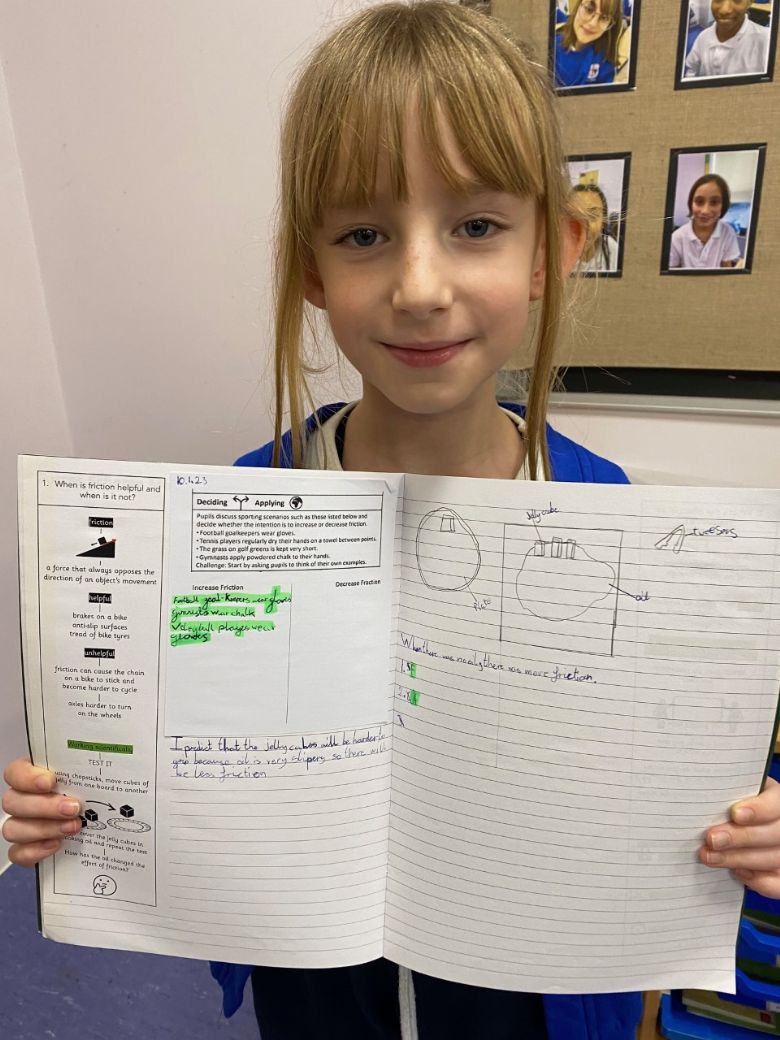 1. When is friction helpful and
when is it not?
friction
a force that always opposes the
direction of an object's movement
helpful
brakes on a bike
anti-slip surfaces
tread of bike tyres
unhelpful
friction can cause the chain
on a bike to stick and
become harder to cycle
axles harder to turn
on the wheels
Working scientifically
TEST IT
using chopsticks, move cubes of
jelly from one board to another
cover the jelly cubes in
cooking oil and repeat the test
How has the oil changed the
effect of friction?
10.1.23
Deciding Applying
Pupils discuss sporting scenarios such as those listed below and
decide whether the intention is to increase or decrease friction.
• Football goalkeepers wear gloves.
• Tennis players regularly dry their hands on a towel between points.
• The grass on golf greens is kept very short.
• Gymnasts apply powdered chalk to their hands.
Challenge: Start by asking pupils to think of their own examples.
Increase Friction
Decrease Friction
Football goal-keepers wear gloves
Gymnasts wear chalk
Voleyball playes wear
gloves
I predict that the jelly cubes will be harder to
grip because oil is very slipery so there will
be less friction
Jelly cube
tweesers
oil
When there was no oil there was more friction.
1.
2.